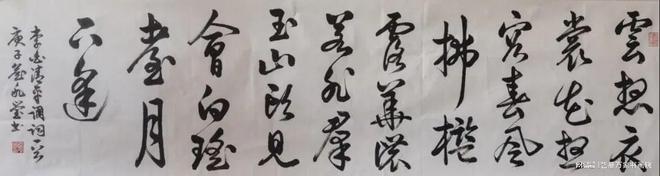 雲想衣
裳花想
容春風
拂檻
露華濃
若非群
玉山頭見
會向瑤
臺月
下逢
李白清平调词一首
庚子 書